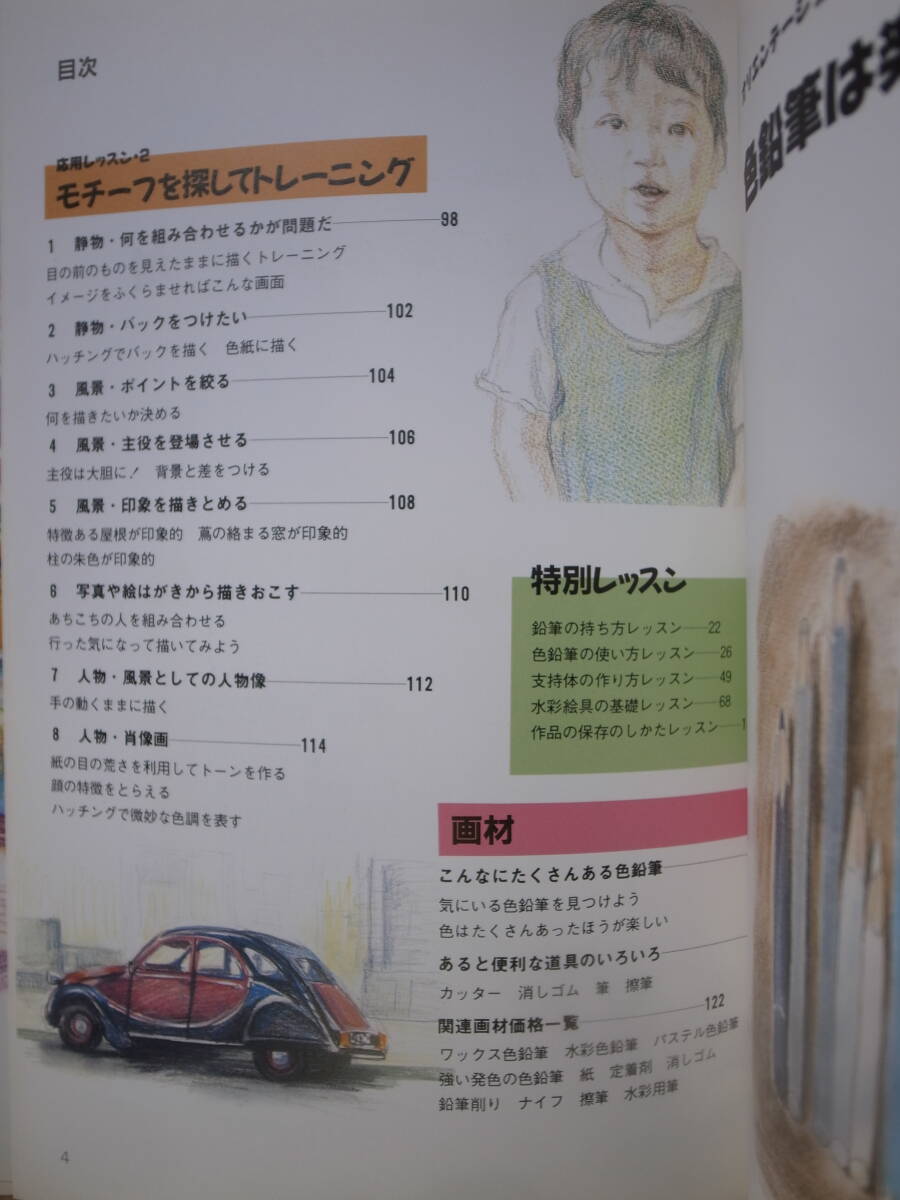 目次
応用レッスン・2
モチーフを探してトレーニング
1 静物・何を組み合わせるかが問題だ 98
目の前のものを見えたままに描くトレーニング
イメージをふくらませればこんな画面
2 静物・バックをつけたい 102
ハッチングでバックを描く 色紙に描く
3 風景・ポイントを絞る 104
何を描きたいか決める
4 風景・主役を登場させる 106
主役は大胆に! 背景と差をつける
5 風景・印象を描きとめる 108
特徴ある屋根が印象的 蔦の絡まる窓が印象的
柱の朱色が印象的
6 写真や絵はがきから描きおこす 110
あちこちの人を組み合わせる
行った気になって描いてみよう
7 人物・風景としての人物像 112
手の動くままに描く
8 人物・肖像画 114
紙の目の荒さを利用してトーンを作る
顔の特徴をとらえる
ハッチングで微妙な色調を表す
特別レッスン
鉛筆の持ち方レッスン 22
色鉛筆の使い方レッスン 26
支持体の作り方レッスン 49
水彩絵具の基礎レッスン 68
作品の保存のしかたレッスン 1
画材
こんなにたくさんある色鉛筆
気にいる色鉛筆を見つけよう
色はたくさんあったほうが楽しい
あると便利な道具のいろいろ
カッター 消しゴム 筆 擦筆
関連画材価格一覧 122
ワックス色鉛筆 水彩色鉛筆 パステル色鉛筆
強い発色の色鉛筆 紙 定着剤 消しゴム
鉛筆削り ナイフ 擦筆 水彩用筆
4
オリエンテーショ
色鉛筆は